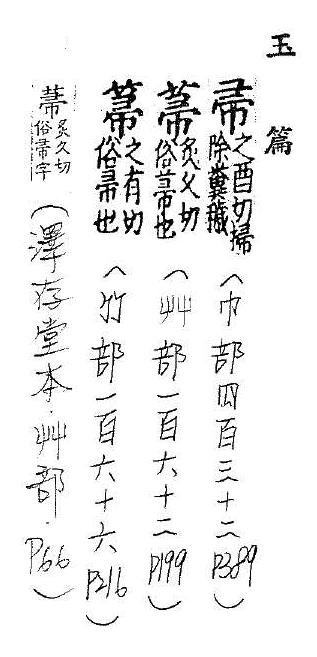 玉篇
帚之酉切掃除糞穢(巾部四百三十二P389)
菷炙久切俗帚也(艸部一百六十二P199)
箒之有切俗帚也(竹部一百六十六P216)
菷炙久切俗帚字(澤存堂本·艸部·P66)